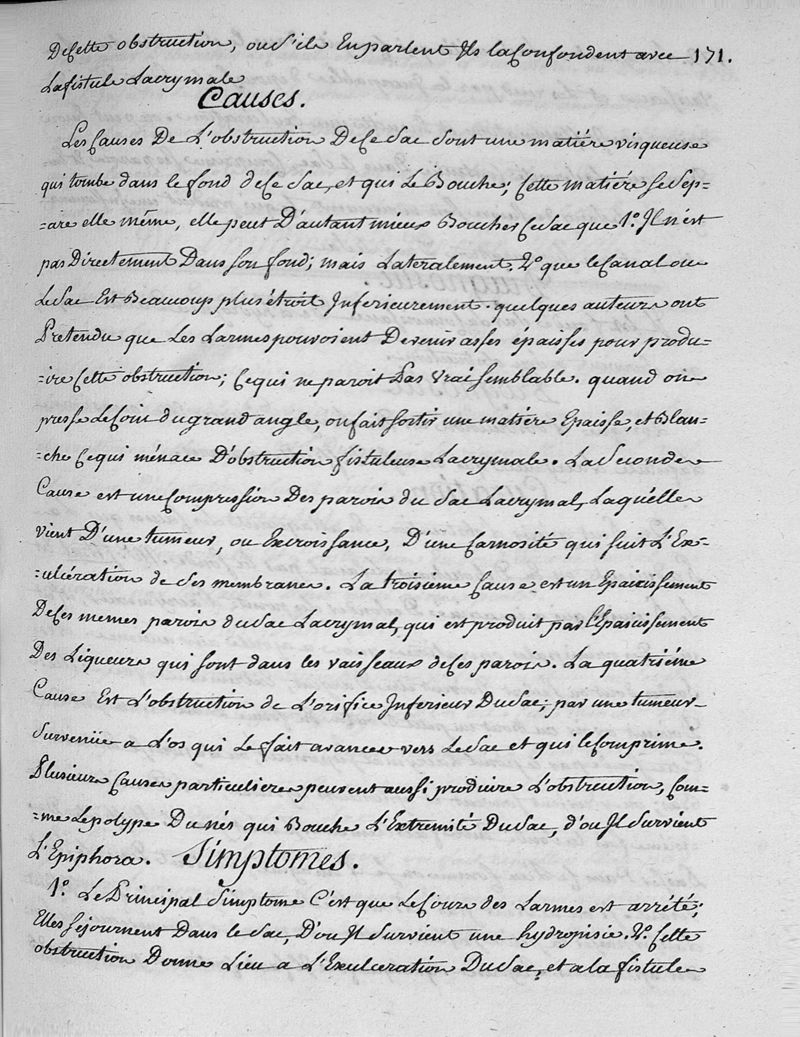 De cette obstruction, ou s'ils En parlent Ils la Confondent avec 171.
La fistule Lacrymale
Causes.
Les Causes De L'obstruction De Ce Sac Sont une matiére visqueuse
qui tombe dans le fond de Ce Sac, et qui Le Bouche; Cette matiére se Sep=
=are elle même, elle peut D'autant mieux Boucher Ce Sac que 1.º Il n'est
pas Directement Dans son fond; mais Lateralement. 2.º que le Canal ou
Le Sac Est Beaucoup plus étroit Inferieurement. quelques auteurs ont
Pretendu que Les Larmes pouvoient Devenir asses épaisses pour produ=
=ire Cette obstruction; Ce qui ne paroit Pas vrai semblable. quand on
presse Le Coin du grand angle, on fait sortir une matiére Epaisse, et Blan=
=che Ce qui ménace D'obstruction fistuleuse Lacrymale. La Seconde
Cause est une Compression Des parois du Sac Lacrymal, Laquélle
vient D'une tumeur, ou Excroissance, D'une Carnosité qui suit L'Ex=
=ulcération de Ses membranes. La troisiéme Cause est un Epaicissement
De Ces memes parois du Sac Lacrymal, qui est produit par l'Epaicissement
Des Liqueurs qui sont dans les vaisseaux de Ces parois. La quatriéme
Cause Est L'obstruction de L'orifice Inferieur Du Sac; par une tumeur
Survenüe a L'os qui Le fait avancer vers Le Sac et qui le Comprime.
Plusieurs Causes particulieres peuvent aussi produire L'obstruction, Com=
=me Le polype Du nés qui Bouche L'Extremité Du Sac, d'ou Il Survient
L'Epiphora. Simptomes.
1.º Le Principal Simptome C'est que Le Cours des Larmes est arrété;
Elles séjournent Dans le Sac, D'ou Il Survient une hydropisie. 2.º Cette
obstruction Donne Lieu a L'Exulceration Du Sac, et a la fistule